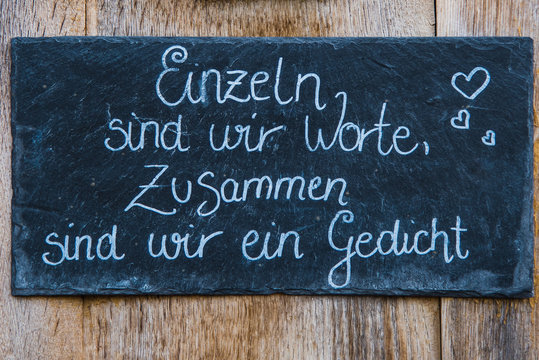 Einzeln
sind wir Worte,
Zusammen
sind wir ein Gedicht